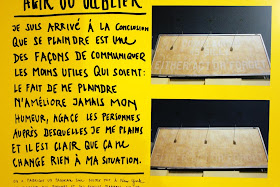 AGIR OU OUBLIER
JE SUIS ARRIVÉ À LA CONCLUSION
QUE SE PLAINDRE EST UNE
DES FAÇONS DE COMMUNIQUER
LES MOINS UTILES QUI SOIENT:
LE FAIT DE ME PLAINDRE
N'AMÉLIORE JAMAIS MON
HUMEUR, AGACE LES PERSONNES
AUPRÈS DESQUELLES JE ME PLAINS
ET IL EST CLAIR QUE ÇA NE
CHANGE RIEN À MA SITUATION.